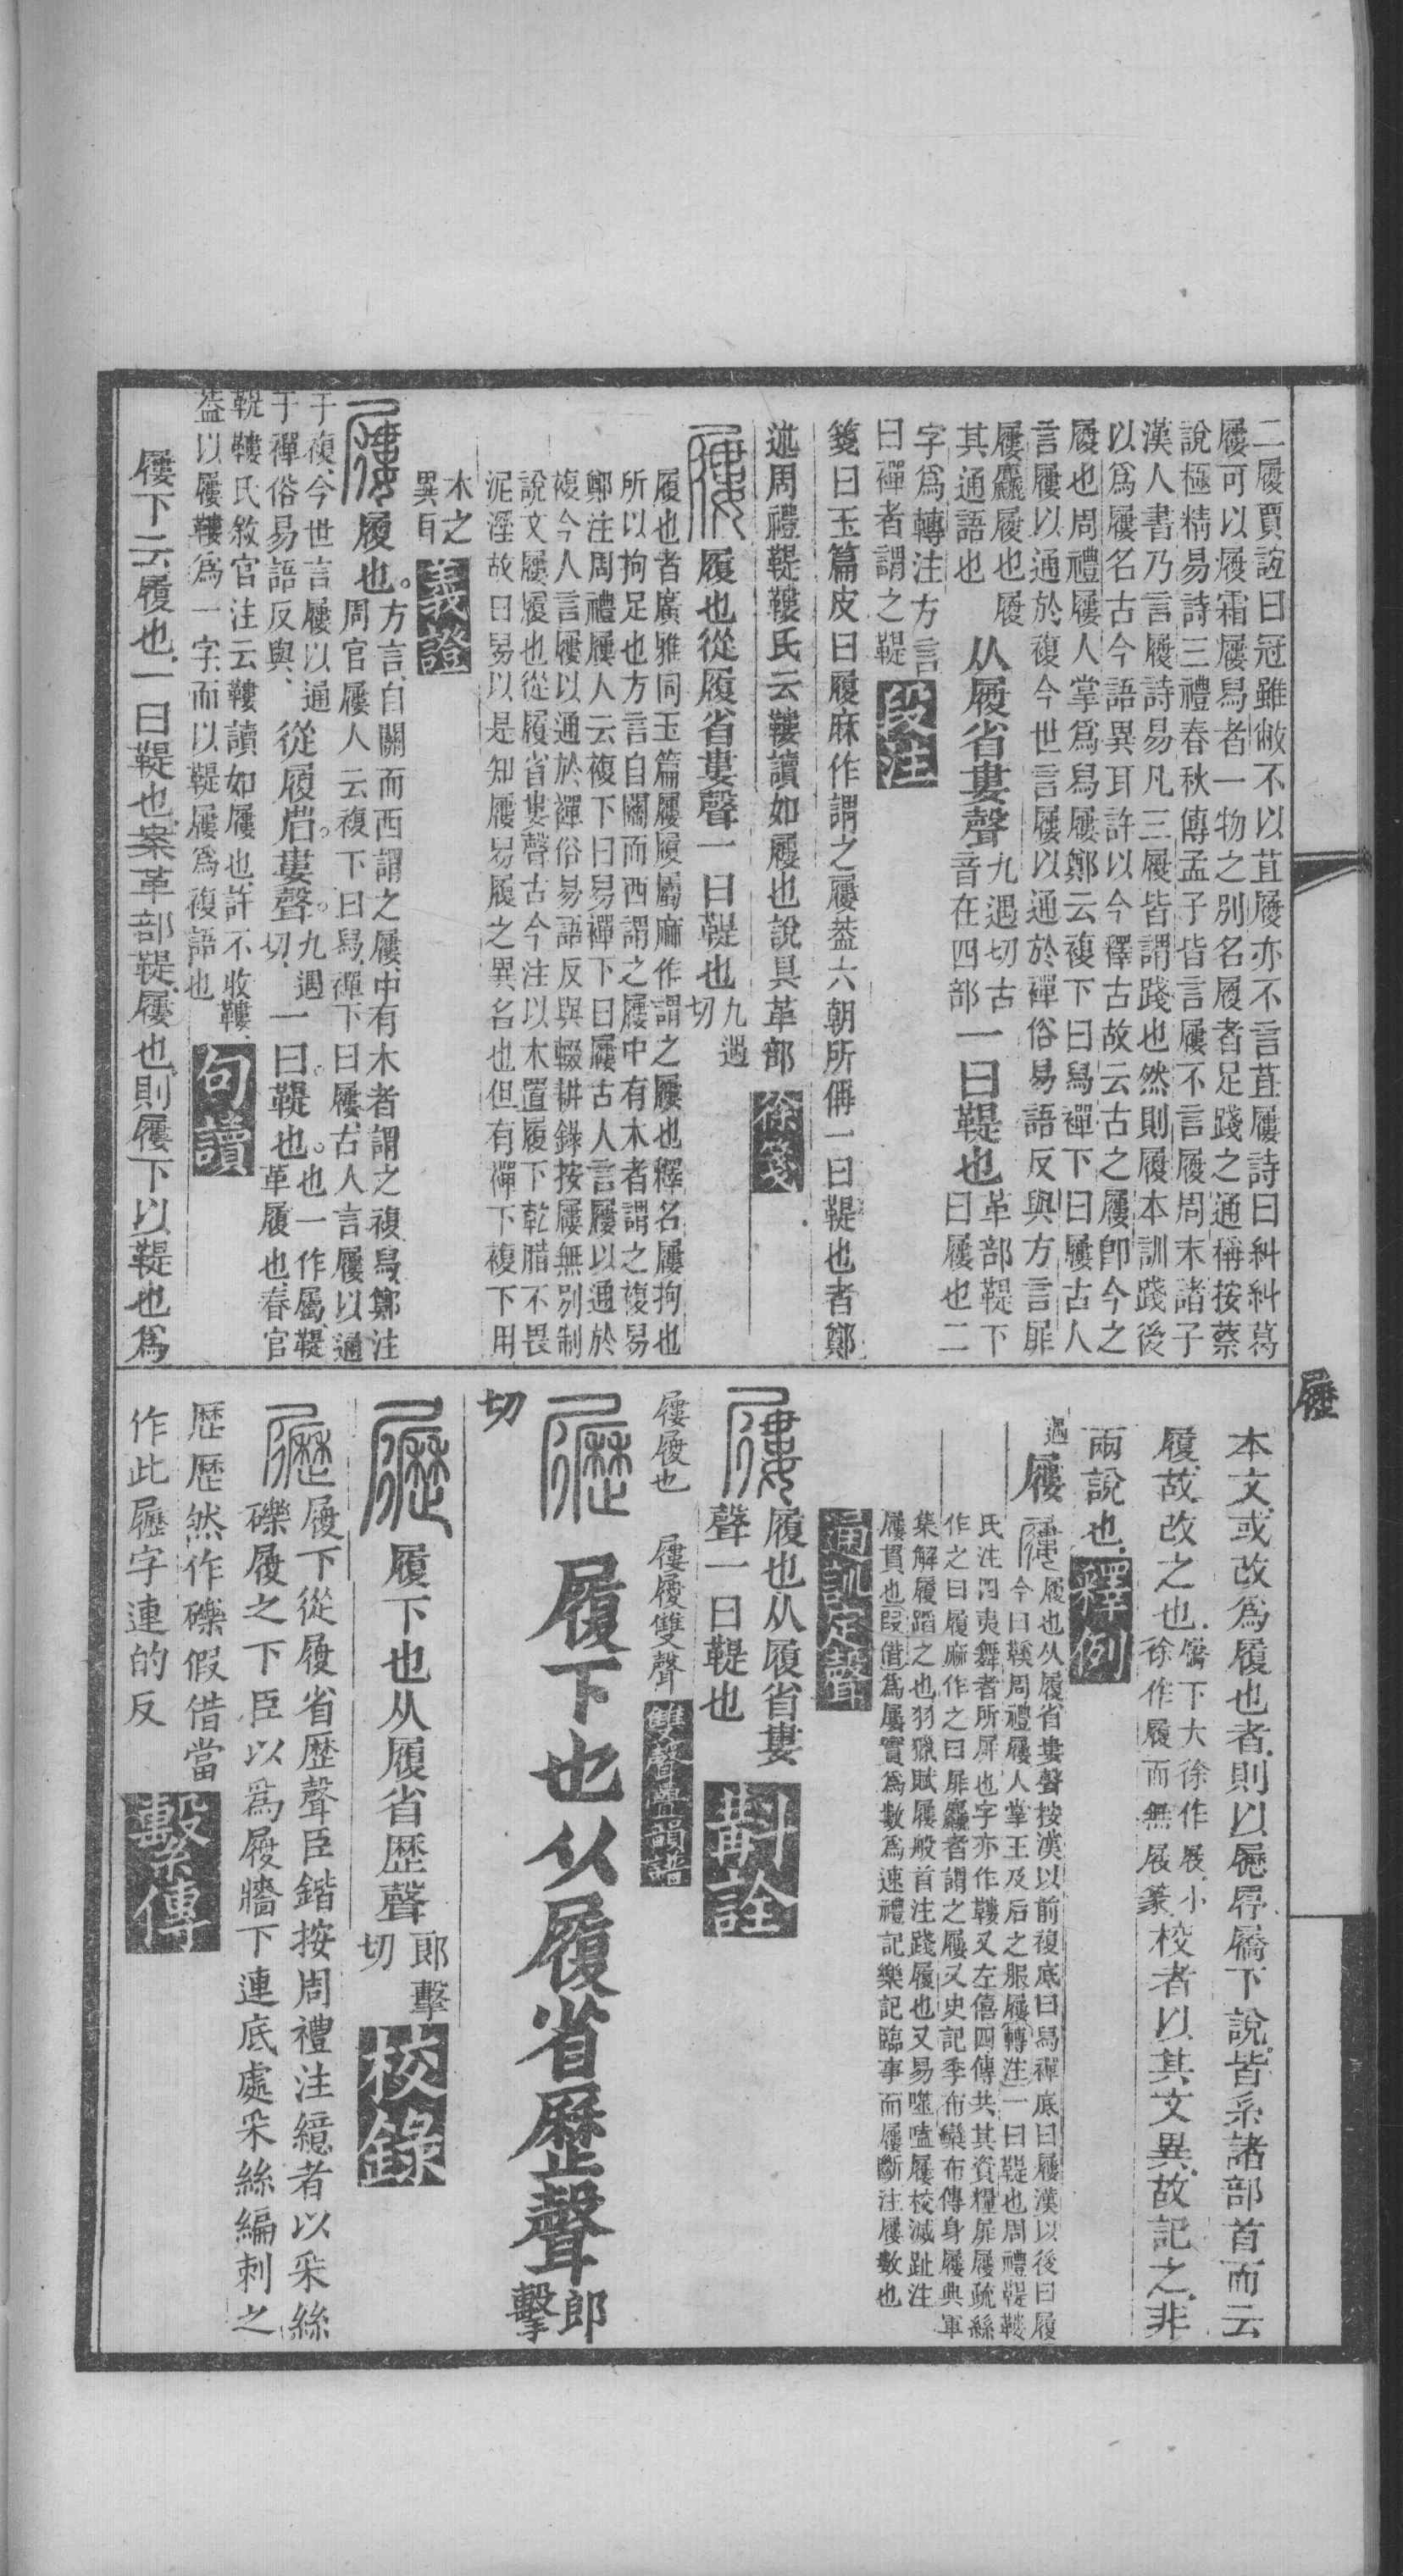 二屨賈誼曰冠雖敝不以苴履亦不言苴屨詩曰糾糾葛
屨可以履霜屨舄者一物之別名履者足踐之通稱按蔡
說極精易詩三禮春秋傳孟子皆言屨不言履周末諸子
漢人書乃言履詩易凡三履皆謂踐也然則履本訓踐後
以爲屨名古今語異耳許以今釋古故云古之屨卽今之
履也周禮屨人掌爲舄屨鄭云複下曰舄襌下曰屨古人
言屨以通於複今世言屨以通於襌俗易語反與方言屝
屨麤履也履
其通語也
从履省婁聲
九遇切古
音在四部
一曰鞮也
革部鞮下
曰屨也二
字爲轉注方言
曰襌者謂之鞮
段注
箋曰玉篇皮曰履麻作謂之屨葢六朝所偁一曰鞮也者鄭
述周禮鞮鞻氏云鞻讀如屨也說具革部
徐箋
履也從履省婁聲一曰鞮也
九遇
切
履也者廣雅同玉篇屨履屬麻作謂之屨也釋名屨拘也
所以拘足也方言自關而西謂之屨中有木者謂之複舄
鄭注周禮屨人云複下曰舄襌下曰屨古人言屨以通於
複今人言屨以通於襌俗易語反與輟耕錄按屨無別制
說文屨履也從履省婁聲古今注以木置履下乾腊不畏
泥溼故曰舄以是知屨舄履之異名也但有襌下複下用
木之
異耳
義證
履也
方言自關而西謂之屨中有木者謂之複舄鄭注
周官屨人云複下曰舄襌下曰屨古人言屨以通
于複今世言屨以通
于襌俗易語反與
從履省婁聲
九遇
切
一曰鞮也
也一作屬鞮
革履也春官
鞮鞻氏敘官注云鞻讀如屨也許不收鞻
葢以屨鞻爲一字而以鞮屨爲複語也
句讀
屨下云履也一曰鞮也案革部鞮屨也則屨下以鞮也爲
屨
本文或改爲履也者則以屨㞕屩下說皆系諸部首而云
履故改之也
屩下大徐作屐小
徐作履而無屐篆
校者以其文異故記之非
兩說也
釋例
遇
屨
履也从履省婁聲按漢以前複底曰舄襌底曰屨漢以後曰履
今曰鞵周禮屨人掌王及后之服屨轉注一曰鞮也周禮鞮鞻
氏注四夷舞者所屝也字亦作鞻又左僖四傳共其資糧屝屨疏絲
作之曰履麻作之曰屝麤者謂之屨又史記季布欒布傳身屨典軍
集解履蹈之也羽獵賦屨般首注踐屨也又易噬嗑屨校滅趾注
屨貫也叚借爲屢實爲數爲速禮記樂記臨事而屨斷注屨數也
通訓定聲
履也从履省婁
聲一曰鞮也
斠詮
屨履也
屨履雙聲
雙聲疊韻譜
履下也从履省歷聲
郎
擊
切
履下也从履省歷聲
郎擊
切
校錄
履下從履省歷聲臣鍇按周禮注繶者以采絲
礫履之下臣以爲履牆下連底處采絲編刺之
歷歷然作礫假借當
作此𡳐字連的反
繫傳